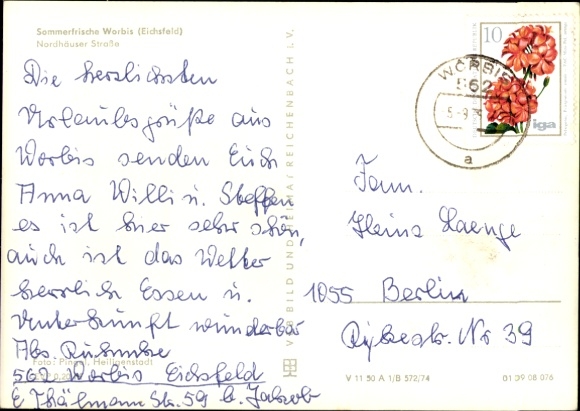 Sommerfrische Worbis (Eichsfeld)
Nordhäuser Straße
Die herzlichsten
Urlaubsgrüße aus
Worbis senden Euch
Anna Willi u. Steffen
es ist hier sehr schön,
auch ist das Wetter
herrlich Essen u.
Unterkunft wunderbar
Abs.
Foto: Heiligenstadt
562 Worbis Eichsfeld
E Thälmann Str. 59 b. Jakob
VEB BILD UND HEIMAT REICHENBACH I. V.
10
iga
WORBIS
562
a
Fam.
Heinz Laenge
1055 Berlin
Rykestr. Nr 39
V 11 50 A 1/B 572/74
01 09 08 076